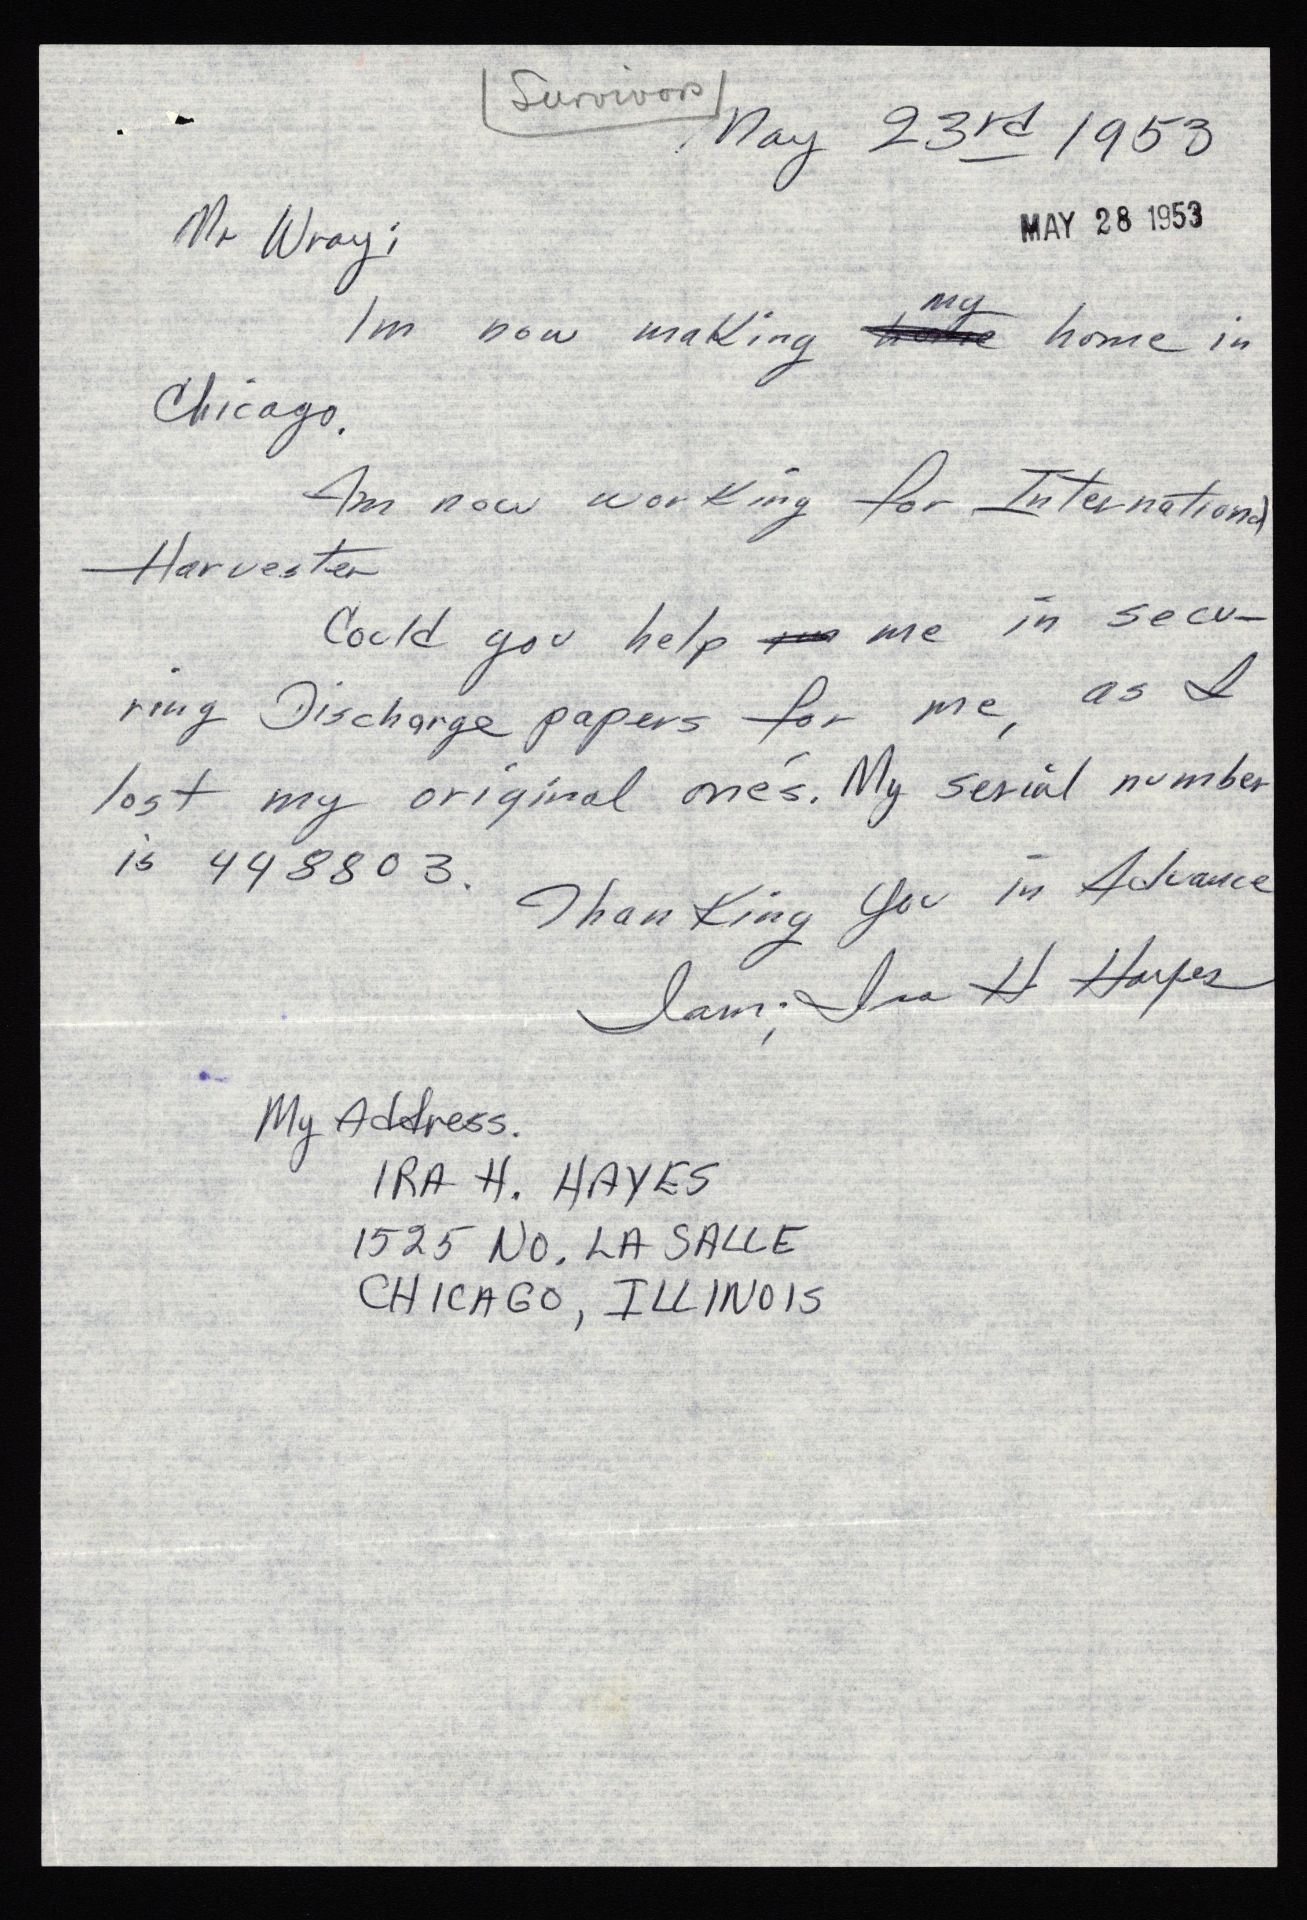 Survivors
May 23rd 1953
MAY 28 1953
Mr Wray;
Im now making my home in
Chicago.
Am now working for International
Harvester
Could you help me in secu-
ring Discharge papers for me, as I
lost my original one's. My serial number
is 448803.
Thanking You in Advance
I am; Ira H Hayes
My Address.
IRA H. HAYES
1525 NO. LA SALLE
CHICAGO, ILLINOIS